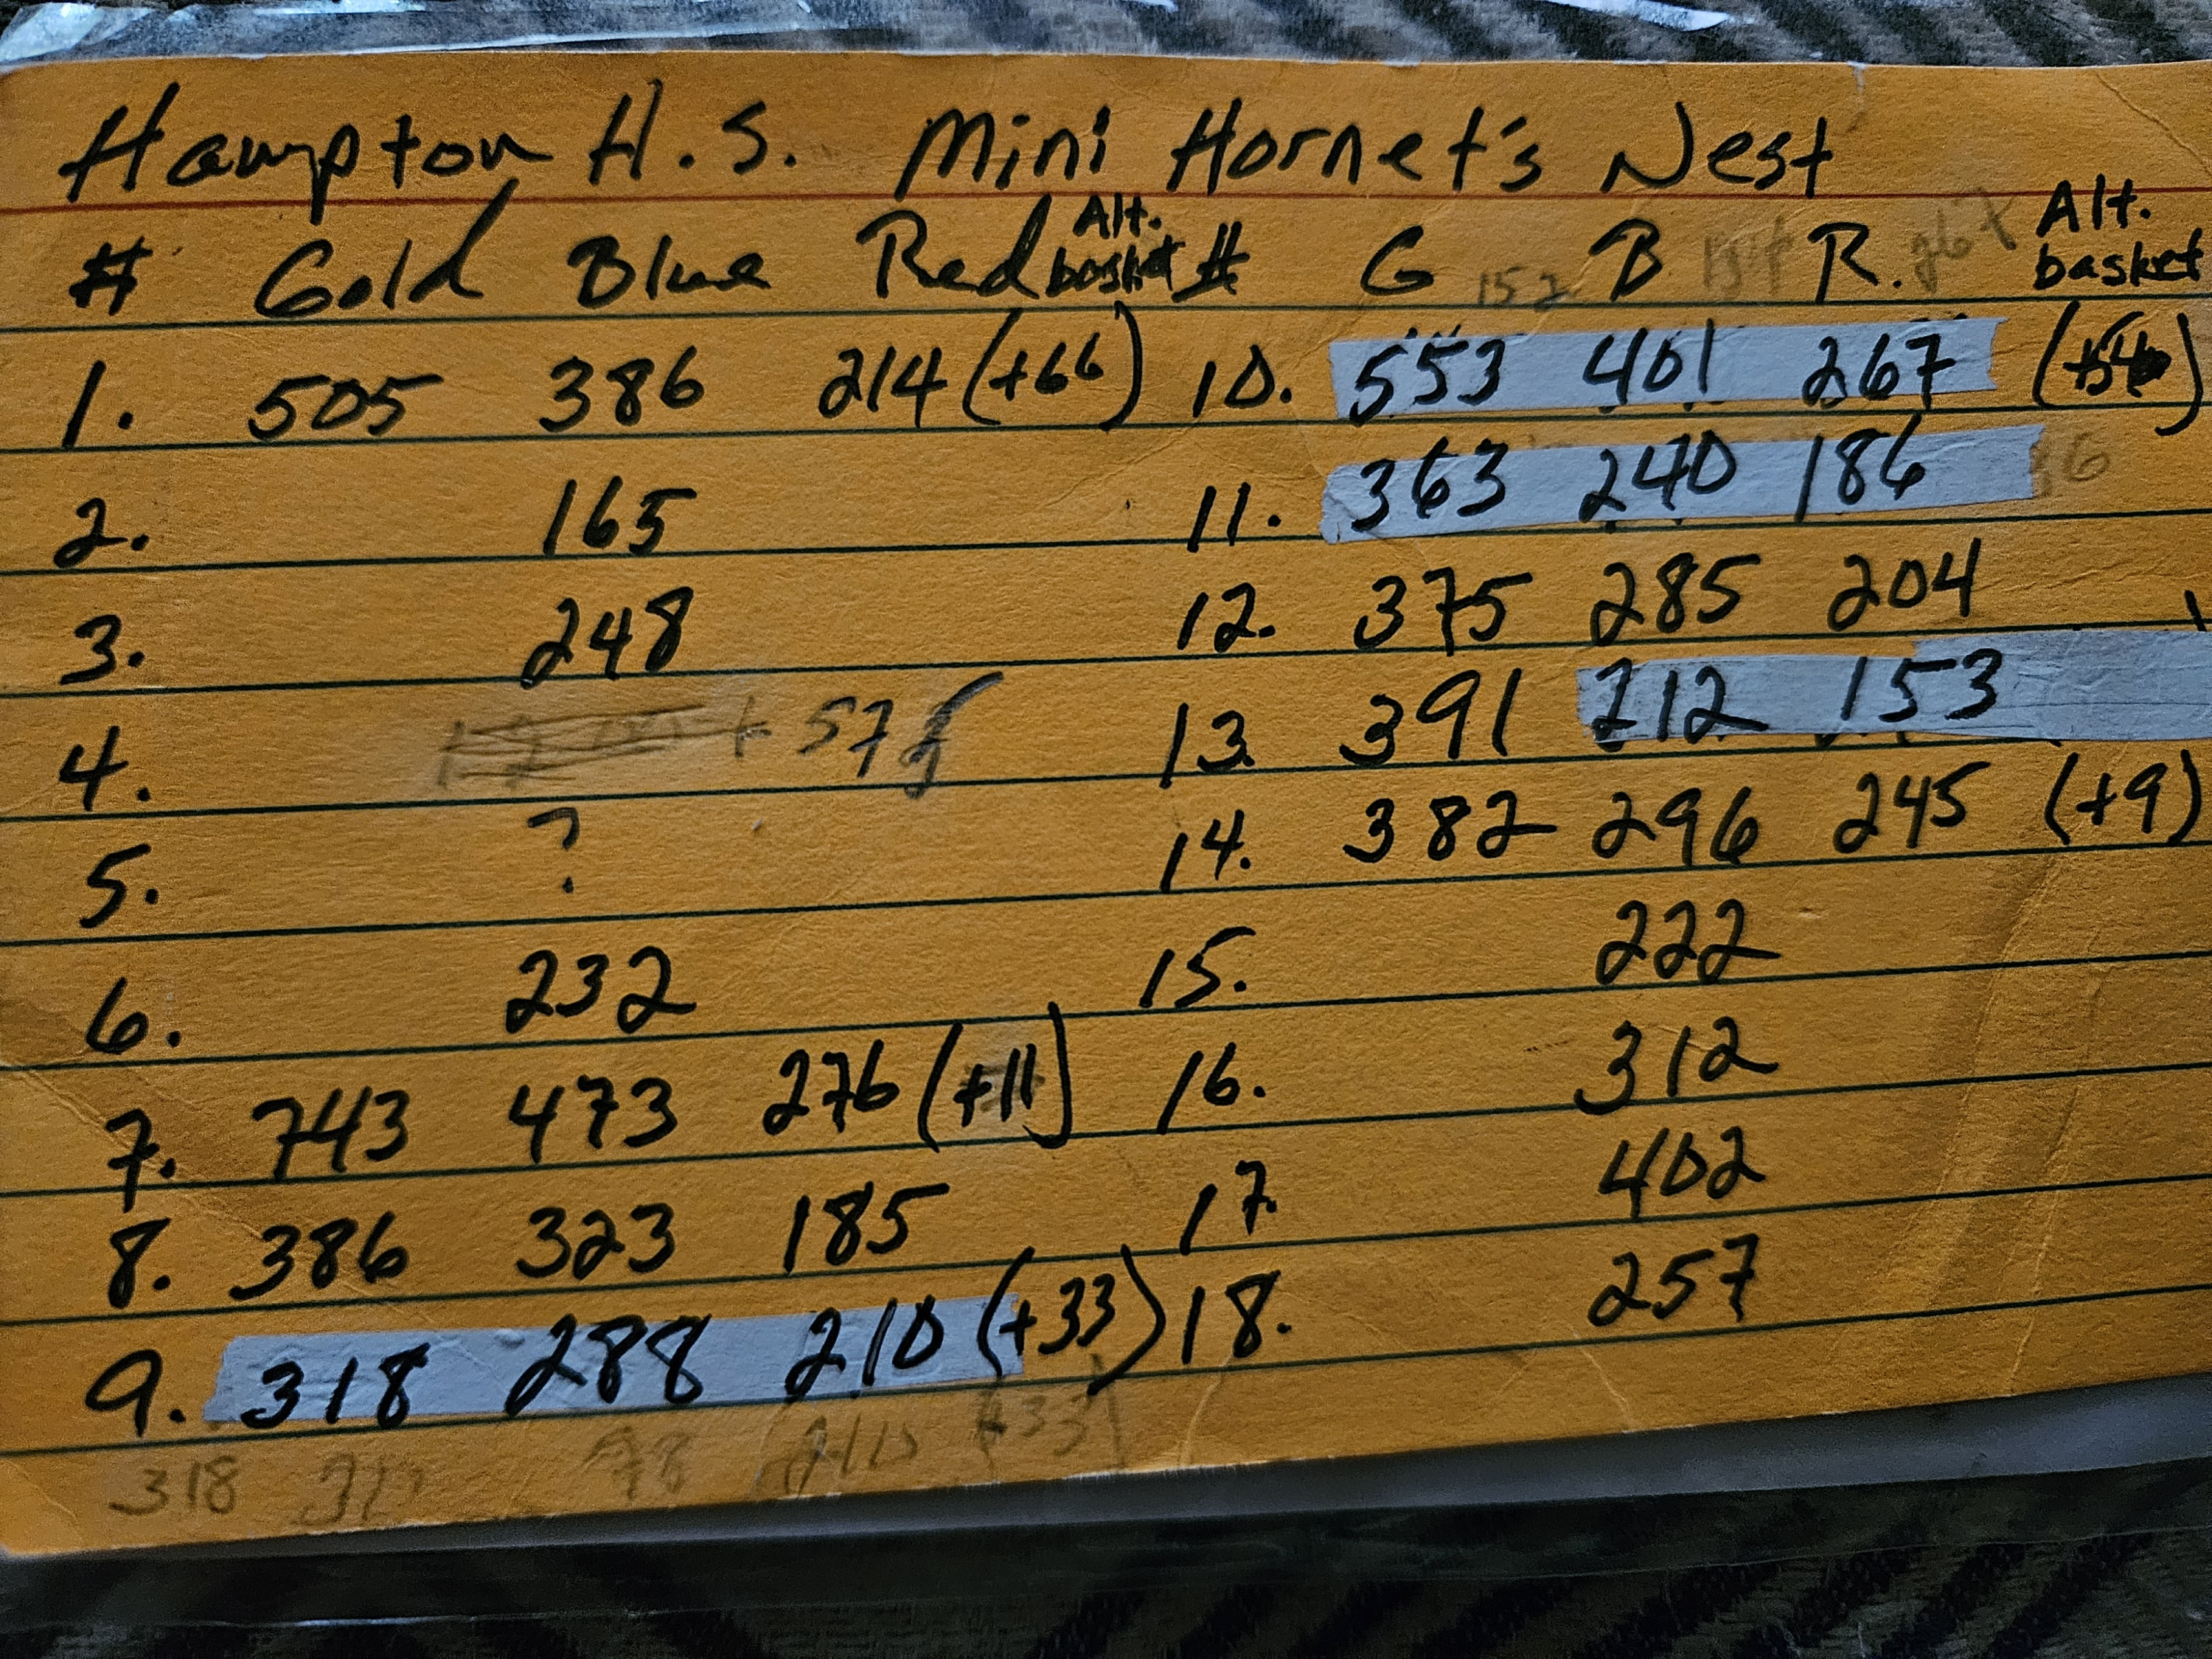 Hampton H.S. Mini Hornet's Nest
# Gold Blue Red Alt. basket # G 152 B R. Alt. basket
1. 505 386 214 (+66) 10. 553 401 267
2. 165 11. 363 240 186
3. 248 12. 375 285 204
4. + 57 13. 391 212 153
5. ? 14. 382 296 245 (+9)
6. 232 15. 222
7. 743 473 276 (+11) 16. 312
8. 386 323 185 17. 402
9. 318 288 210 (+33) 18. 257
318 (+33)